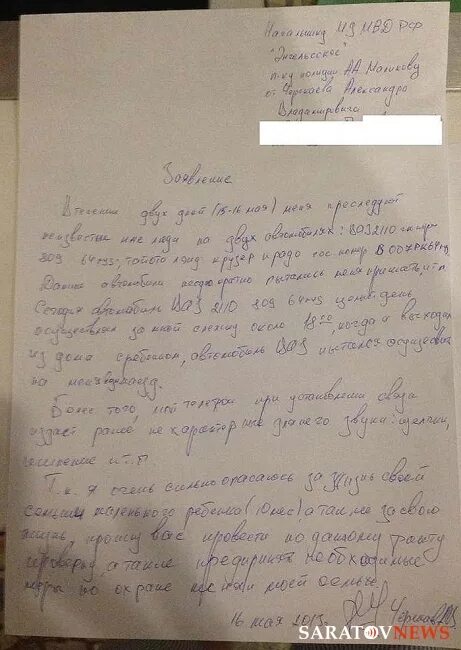 Начальнику МУ МВД РФ
"Энгельсское"
п-ку полиции А.А. Маликову
от Чернаева Александра
Владимировича
Заявление
В течении двух дней (15-16 мая) меня преследуют
неизвестные мне люди на двух автомобилях: ВАЗ 2110
809 64 тойота ланд крузер прадо гос номер В 007 64
Данные автомобили неоднократно пытались меня прижать, и т.п
Сегодня автомобиль ВАЗ 2110 809 64 целый день
осуществлял за мной слежку около 18 00, когда я выходил
из дома с ребенком, автомобиль ВАЗ пытался осуществить
на меня наезд.
Более того, мой телефон при установлении связи
издает ранее не характерные для него звуки: щелчки,
шипение и т.п
Т.к. я очень сильно опасаюсь за жизнь своей
семьи маленького ребенка (10 мес) а так же за свою
жизнь, прошу вас провести по данному факту
проверку, а также предпринять необходимые
меры по охране жизни моей семьи.
16 мая 2013.
SARATOVNEWS